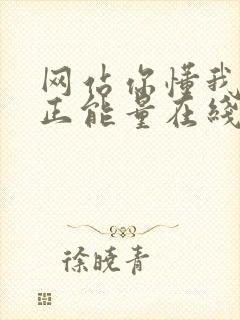 网站你懂我
正能量在线
徐晓青